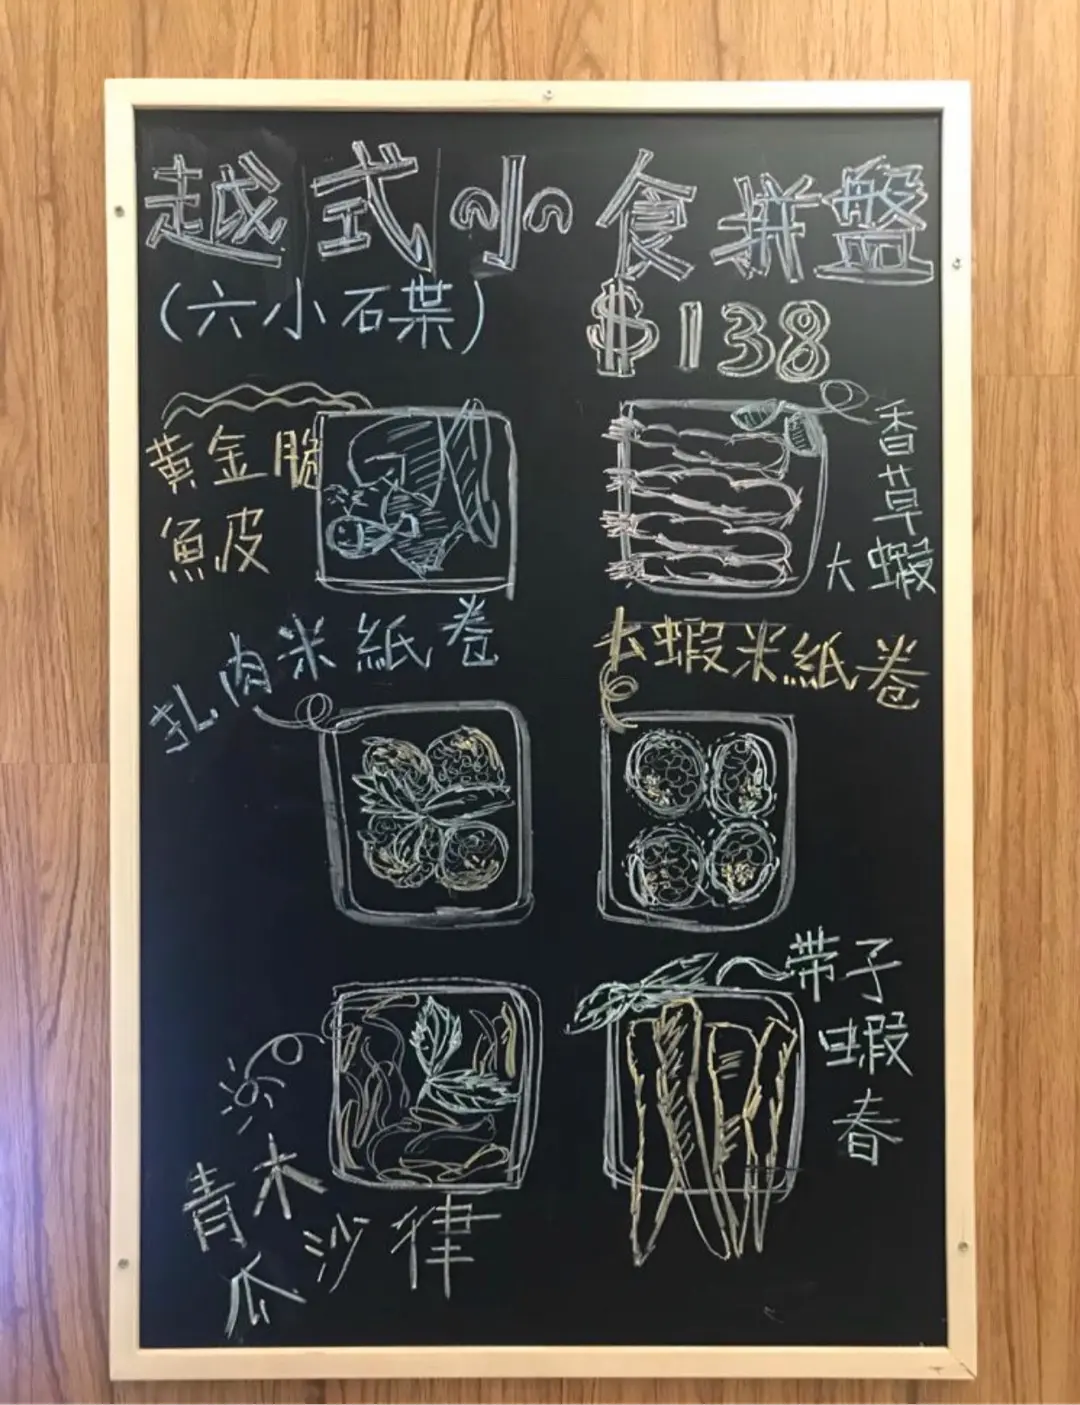 越式小食拼盤
(六小石枼)
$138
黃金脆
魚皮
香草
大蝦
扎肉米紙卷
大蝦米紙卷
帶子
蝦
春
青木
瓜沙律